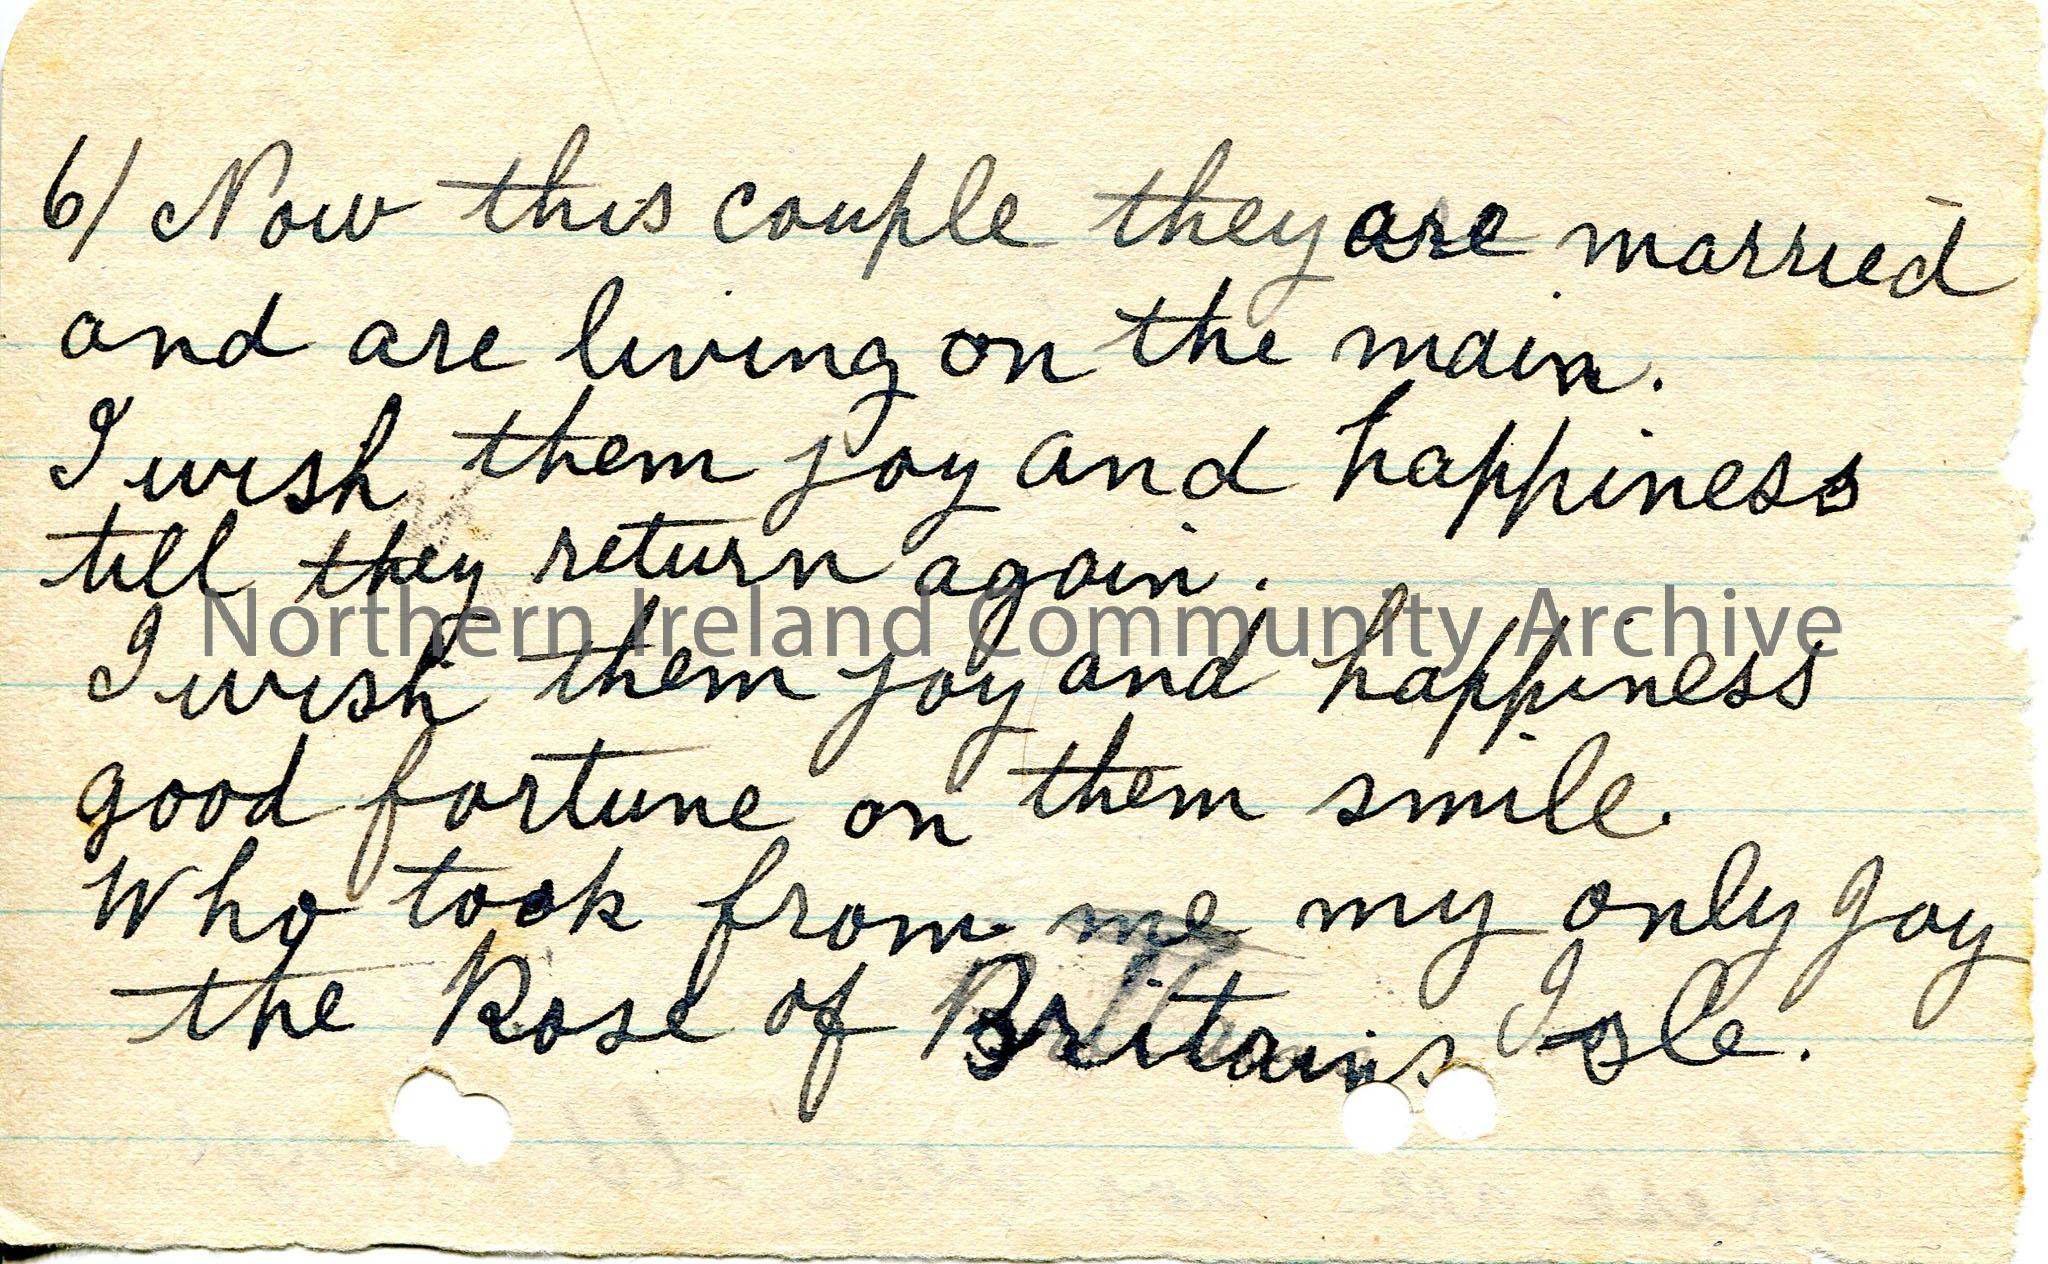 6/ Now this couple they are married
and are living on the main.
I wish them joy and happiness
till they return again.
Northern Ireland Community Archive
I wish them joy and happiness
good fortune on them smile.
Who took from me my only Joy
the Rose of Britains Isle.